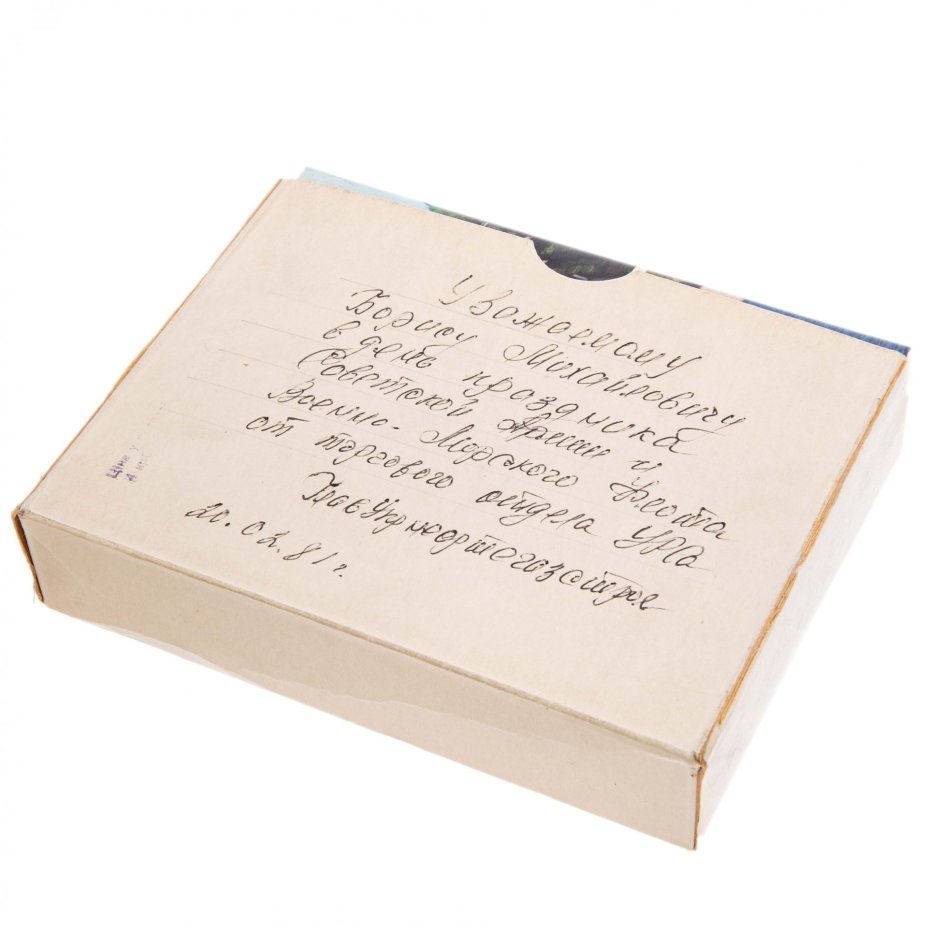 Уважаемому
Борису Михайловичу
в день праздника
Советской Армии и
Военно-Морского Флота
от торгового отдела УРСа
20.02.81г.